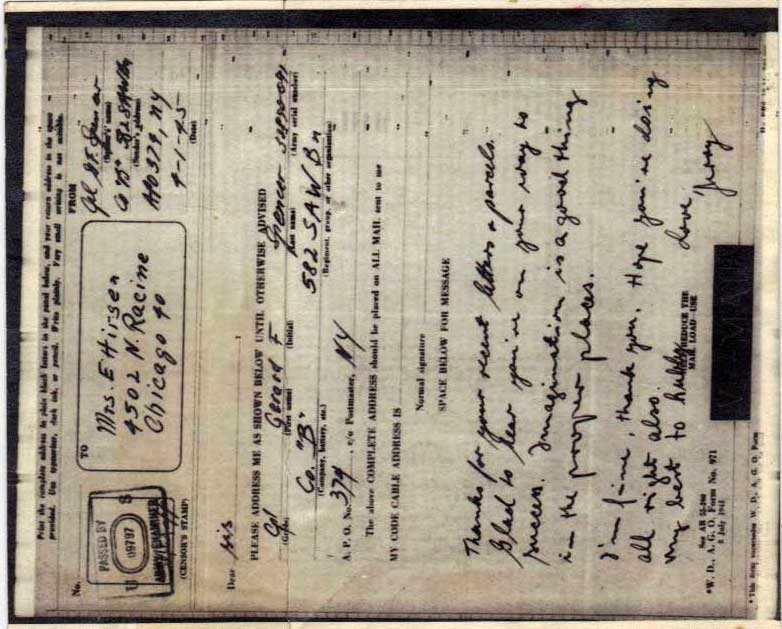 Print the complete address in plain block letters in the panel below, and your return address in the space
provided. Use typewriter, dark ink, or pencil. Write plainly. Very small writing is not suitable.
No.
PASSED BY
U S
09797
ARMY EXAMINER
(CENSOR'S STAMP)
TO
Mrs. E Hirsen
4502 N. Racine
Chicago 40
FROM
Cpl G F Spencer
(Sender's name)
Co "B" 582 SAWBn
(Sender's address)
APO 374, NY
4-1-45
(Date)
Dear sis
PLEASE ADDRESS ME AS SHOWN BELOW UNTIL OTHERWISE ADVISED
Cpl Gerard F Spencer
(Grade) (First name) (Initial) (Last name) (Army serial number)
Co. "B" 582 SAW Bn
(Company, battery, etc.) (Regiment, group, or other organization)
A. P. O. No. 374, c/o Postmaster, NY
The above COMPLETE ADDRESS should be placed on ALL MAIL sent to me
MY CODE CABLE ADDRESS IS
Normal signature
SPACE BELOW FOR MESSAGE
Thanks for your recent letters & parcels.
Glad to hear you're on your way to
success. Imagination is a good thing
in the proper places.
I'm fine, thank you. Hope you're doing
all right also.
my best to hubby
Love
Jerry
REDUCE THE
MAIL LOAD—USE
V-MAIL
See AR
*W. D., A. G. O. Form No. 971
* This form supersedes W. D., A. G. O. Form